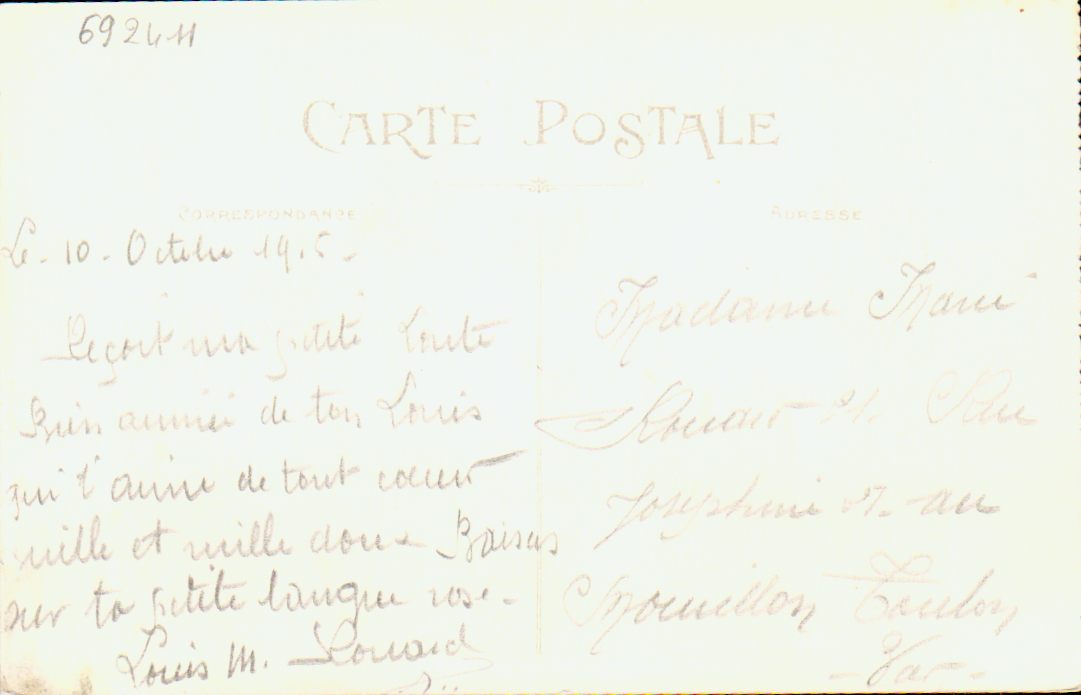 692411
CARTE POSTALE
CORRESPONDANCE
ADRESSE
Le. 10 - Octobre 19.5 -
Reçoit ma petite Loute
Bien aimée de ton Louis
qui t'aime de tout coeur
mille et mille doux Baisers
sur ta petite langue rose -
Louis M.
Madame Marie
Rue
Joséphine au
Mourillon Toulon
- Var -